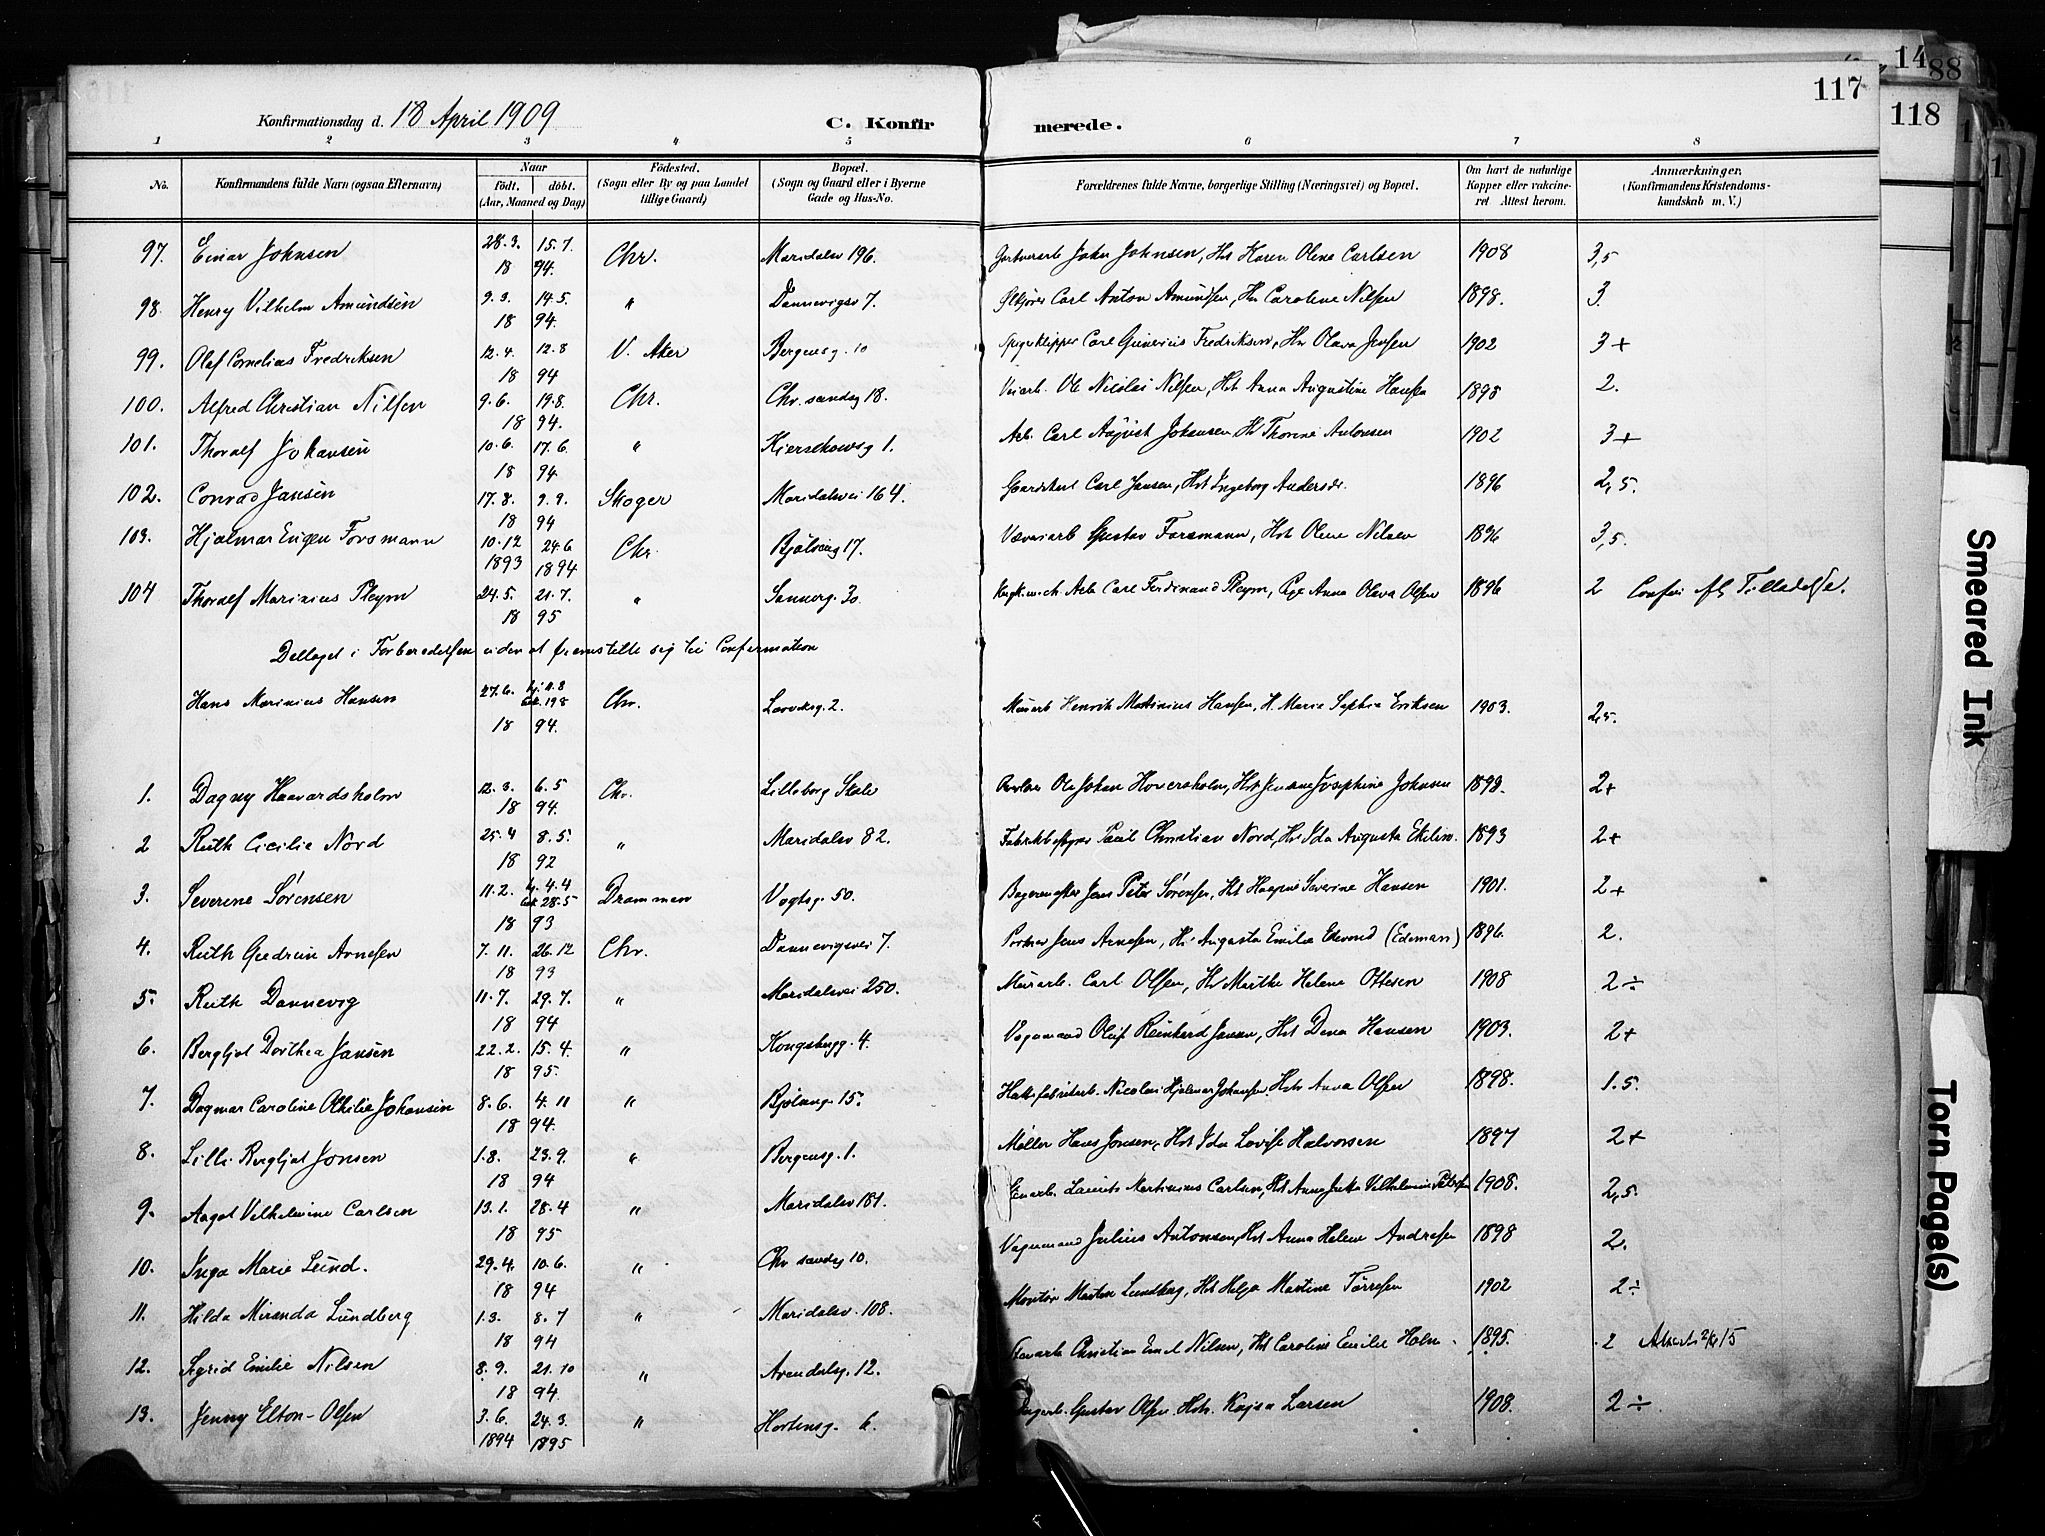 14
88
117
118
1
1
Konfirmationsdag d. 18 April 1909 C. Konfirmerede.
1 2 3 4 5 6 7 8
No. Konfirmandens fulde Navn (ogsaa Efternavn) Naar født. døbt. (Aar, Maaned og Dag) Fødested. (Sogn eller By og paa Landet tillige Gaard) Bopæl. (Sogn og Gaard eller i Byerne Gade og Hus-No. Forældrenes fulde Navne, borgerlige Stilling (Næringsvei) og Bopæl. Om havt de naturlige Kopper eller vakcineret Attest herom. Anmærkninger. (Konfirmandens Kristendomskundskab m. V.)
97. Einar Johnsen 28.3. 15.7. 18 94. Chr. Maridalsv 196. John Johnsen, Hst Karen Olena Carlsen 1908 3,5
98. Henry Vilhelm Amundsen 9.3. 14.5. 18 94. " Dannevigsv 7. Carl Anton Amundsen, Hst Caroline Nilsen 1898. 3.
99. Olaf Cornelius Fredriksen 12.4. 12.8 18 94 V. Aker Bergensg. 10 Carl Gunerius Fredriksen, Hst Olava Jensen 1902 3+
100. Alfred Christian Nilsen 9.6. 19.8. 18 94. Chr. Chr.sandsg 18. Ole Nicolai Nilsen, Hst Anna Augustine Hansen 1898 2.
101. Thoralf Johansen 10.6. 17.6. 18 94. " Kierschowsg 1. Arb. Carl August Johansen Hst Thorine Antonsen 1902 3+
102. Conrad Jansen 17.8. 9.9. 18 94 Skoger Maridalsvei 164. Carl Jansen, Hst Ingeborg Andersdr. 1896 2,5.
103. Hjalmar Eugen Forsmann 10.12 1893 24.6 1894 Chr. Bjølseng 17. Væveriarb Gustav Forsmann, Hst Olene Nilsen 1896 3,5.
104 Thoralf Marinius Pleym 24.5. 21.7. 18 95 " Sannerg. 30. Arb. Carl Ferdinand Pleym, Pige Anna Olava Olsen 1896 2 Confir. eft. Tilladelse.
Deltaget i Forberedelsen uden at fremstille sig til Confirmation
Hans Marinius Hansen 27.6. hj. 11.8 bek. 19.8 18 94. Chr. Larviksg. 2. Murarb Henrik Martinius Hansen, H. Marie Sophie Eriksen 1903. 2,5.
1. Dagny Haavardsholm 12.3. 6.5 18 94. Chr. Lilleborg Skole Ole Johan Hoversholm, Hst Josephine Johnsen 1898. 2+
2 Ruth Cecilie Nord 25.4 8.5. 18 92 " Maridalsv 82. Fabrikbestyrer Paul Christian Nord, Hst Ida Augusta Ekelin 1893 2+
3. Severine Sørensen 11.2. hj. 4.4 bek. 28.5 18 93 Drammen Vogtsg. 50. Jens Peter Sørensen, Hst Severine Hansen 1901. 2+
4. Ruth Gudrun Arnesen 7.11. 26.12 18 93 Chr. Dannevigsvei 7. Portner Jens Arnesen, Hst Augusta Emilie Edmond (Edeman) 1896. 2.
5. Ruth Dannevig 11.7. 29.7. 18 94 " Maridalsvei 250. Murarb. Carl Olsen, Hst Marthe Helene Ottesen 1908 2÷
6. Bergljot Dorthea Jansen 22.2. 15.4. 18 95. " Kongsbergg. 4. Vognmand Oluf Reinhard Jansen, Hst Dena Hansen 1903. 2+
7. Dagmar Caroline Othilie Johansen 8.6. 4.11 18 94. " Bjølseng. 15. Hattefabrikarb. Nicolai Hjalmar Johansen. Hst Anna Olsen 1898. 1.5.
8. Lilli Bergljot Jonsen 1.8. 23.9. 18 94 " Bergensg. 1. Møller Hans Jonsen, Hst Ida Lovise Halvorsen 1897 2+
9. Aagot Vilhelmine Carlsen 13.1. 28.4 18 95 " Maridalsv 181. Laurits Martinius Carlsen, Hst Vilhelmine Petersen 1908. 2,5.
10. Inga Marie Lund. 29.4. 10.6. 18 94 " Chr sandsg 10. Vognmand Julius Antonsen, Hst Anna Helene Andresen 1898 2.
11. Hilda Miranda Lundberg 1.3. 8.7 18 94 " Maridalsv. 108. Montør Morten Lundberg, Hst Helga Martine Tørresen 1902 2÷
12. Sigrid Emilie Nilsen 8.9. 21.10 18 94. " Arendalsg. 12. Christian Emil Nilsen, Hst Caroline Emilie Holm 1895. 2 Attest 2/6 15
13. Jenny Elton-Olsen 3.6. 1894 24.3. 1895 " Hortensg. 6. Gustav Olsen. Hst. Kajsa Larsen 1908. 2÷
Smeared Ink
Torn Page(s)